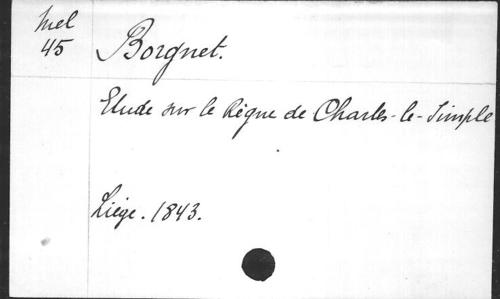 Mel
45
Borgnet.
Etude sur le Règne de Charles-le-Simple
Liège. 1843.